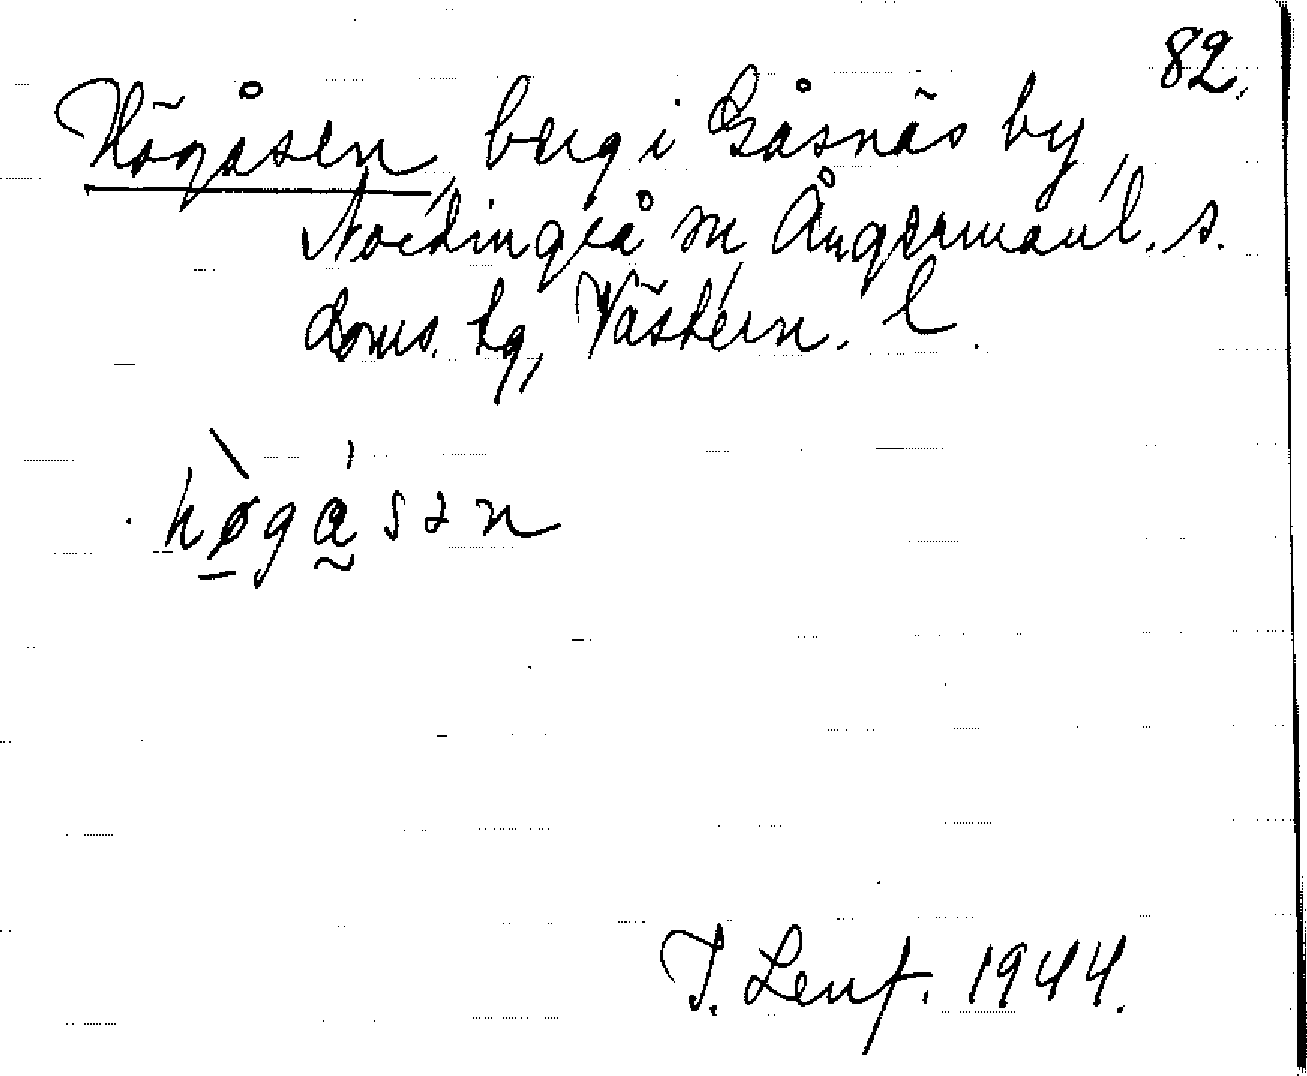 82.
Högåsen, berg i Gåsnäs by,
Nordingrå sn Ångermanl. s.
doms. hg, Västern. l.
hø̀gása n
J. Lenf. 1944.